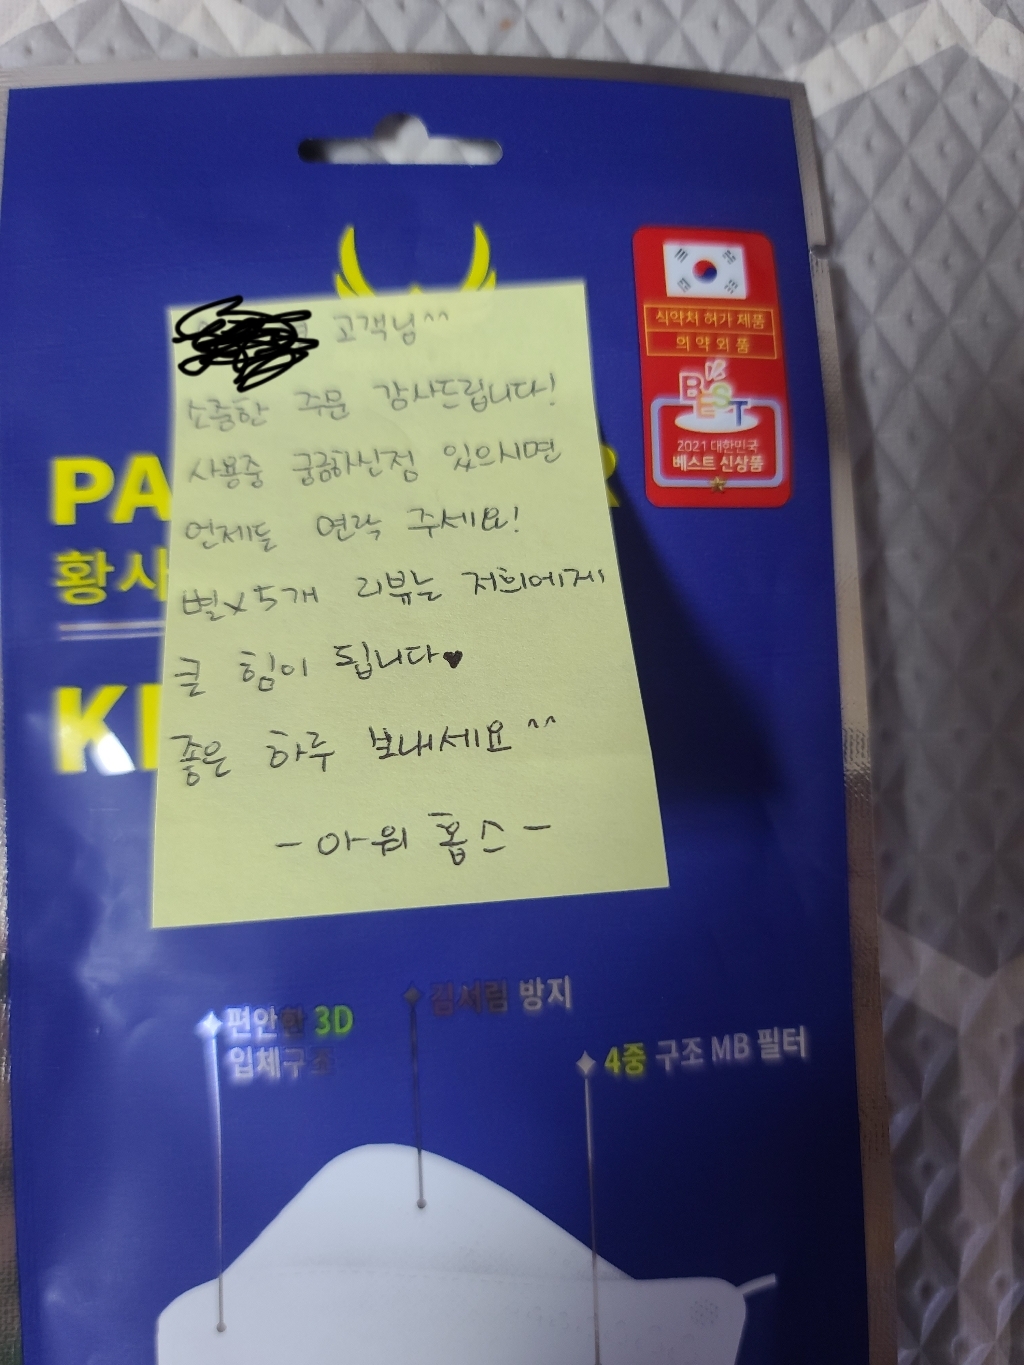 고객님^^
소중한 주문 감사드립니다!
사용중 궁금하신점 있으시면
언제든 연락 주세요!
별x5개 리뷰는 저희에게
큰 힘이 됩니다♥
좋은 하루 보내세요^^
-아워 홉스-
식약처 허가 제품
의약외품
BEST
2021 대한민국
베스트 신상품
PA
황사
편안한 3D
입체구조
김서림 방지
4중 구조 MB 필터